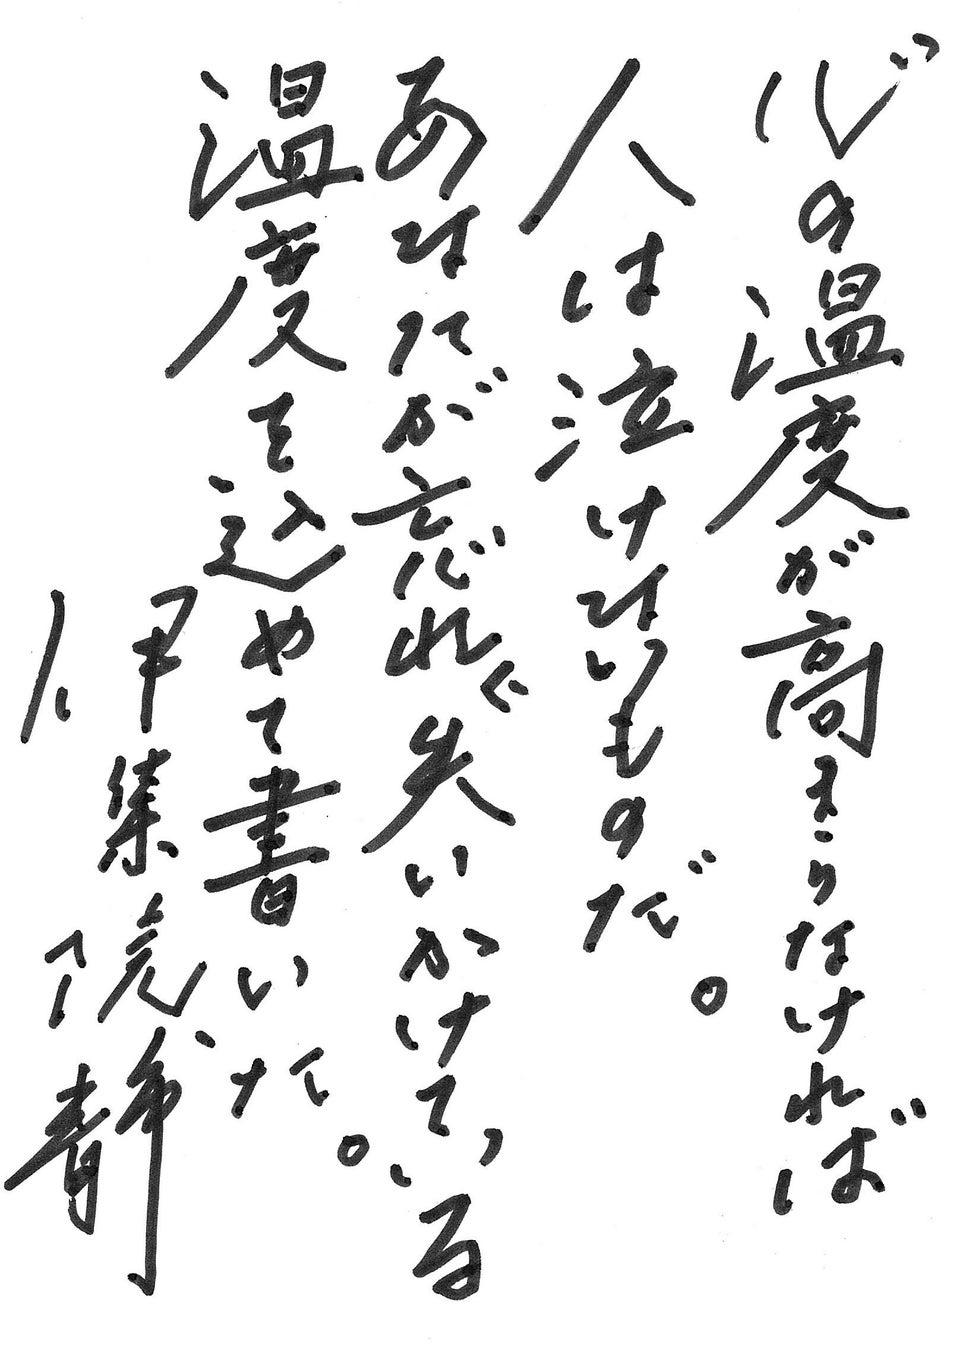 心の温度が高まらなければ
人は泣けないものだ。
あなたが忘れ失いかけている
温度を込めて書いた。
伊集院静